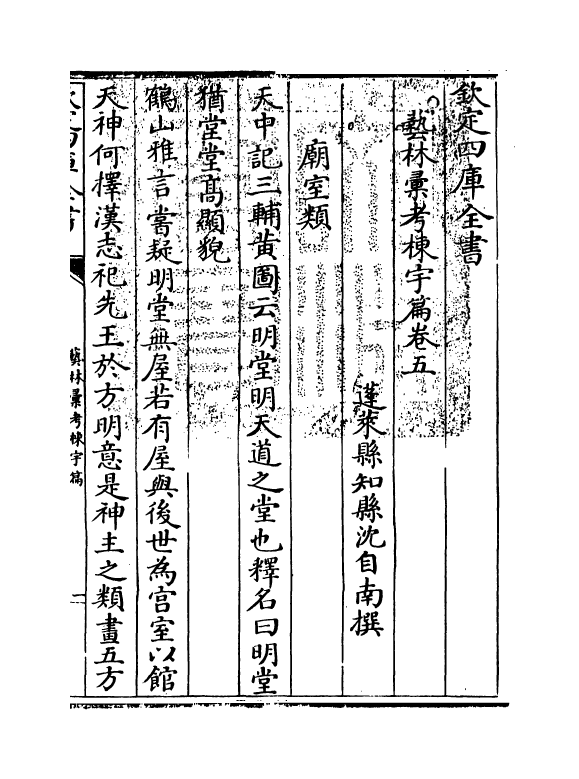 欽定四庫全書
藝林彚考棟宇篇卷五
蓬萊縣知縣沈自南撰
廟室類
天中記三輔黄圖云明堂明天道之堂也釋名曰明堂
猶堂堂髙顯貌
鶴山雅言嘗疑明堂無屋若有屋與後世為宫室以館
天神何擇漢志祀先王於方明意是神主之類畫五方
欽定四庫全書
藝林彚考棟宇篇